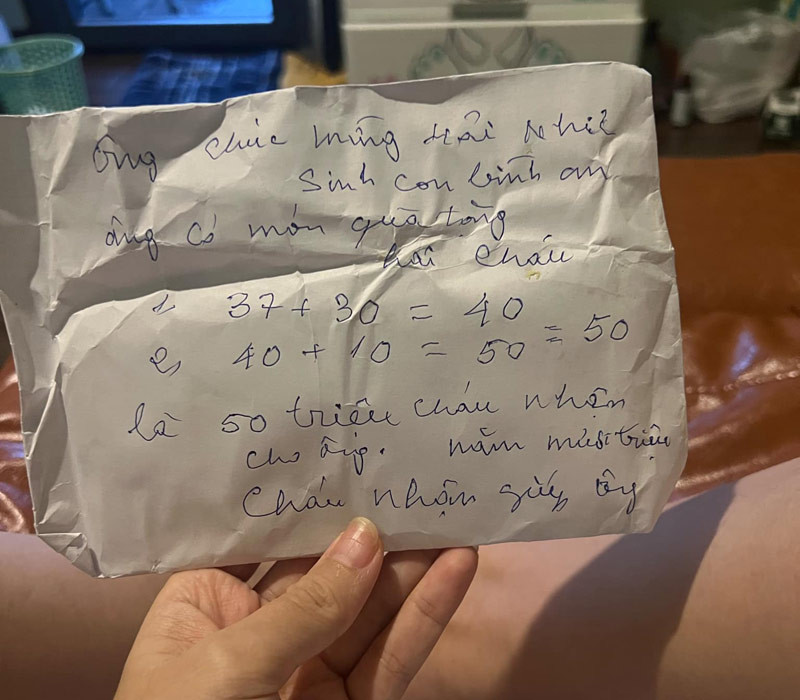 ông chúc mừng Hải Nhi
Sinh con bình an
ông có món quà tặng
hai cháu
1, 37 + 30 = 40
2, 40 + 10 = 50 = 50
là 50 triệu cháu nhận
cho ông. năm mươi triệu
Cháu nhận giúp ông